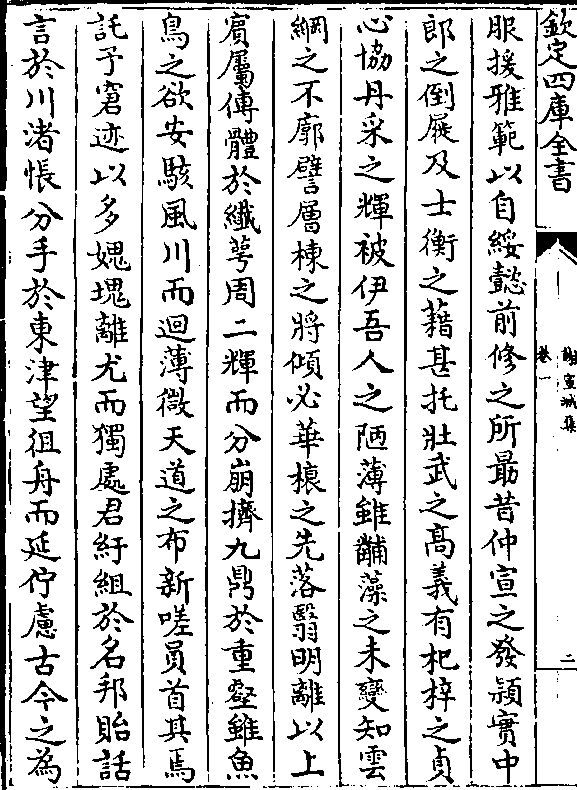 欽定四庫全書
謝宣城集
卷一
二
眼援雅範以自綏懿前修之所勗昔仲宣之發頴實中
郎之倒屣及士衡之藉甚托壯武之髙義有杞梓之貞
心協丹采之輝被伊吾人之陋薄雖黼藻之未變知雲
綱之不廓譬層棟之將傾必華榱之先落翳明離以上
賔屬傳體於纎蕚周二輝而分崩擠九鼎於重壑雖魚
鳥之欲安駭風川而迴薄微天道之布新嗟員首其焉
託予窘迹以多媿塊離尤而獨處君紆組於名邦貽話
言於川渚悵分手於東津望徂舟而延佇慮古今之為